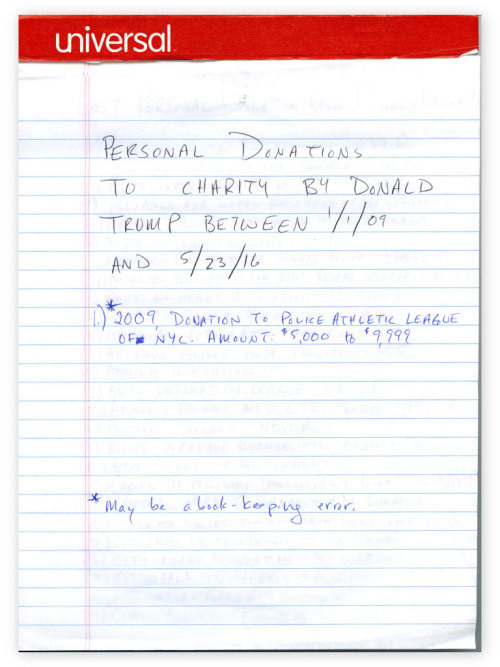 universal
PERSONAL DONATIONS
TO CHARITY BY DONALD
TRUMP BETWEEN 1/1/09
AND 5/23/16
1.) *2009, DONATION TO POLICE ATHLETIC LEAGUE
OF NYC. AMOUNT: $5,000 to $9,999
* May be a book-keeping error.